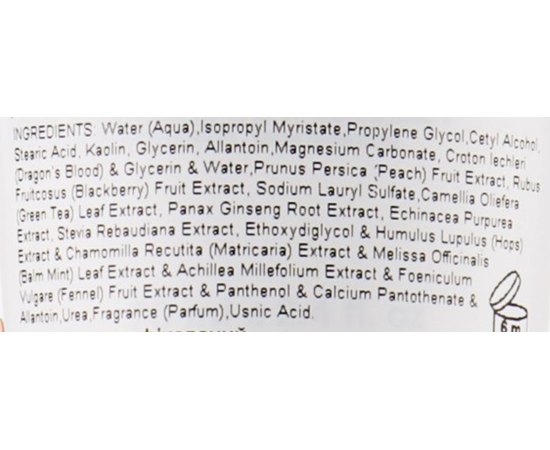 INGREDIENTS: Water (Aqua),Isopropyl Myristate,Propylene Glycol,Cetyl Alcohol,
Stearic Acid, Kaolin, Glycerin, Allantoin,Magnesium Carbonate, Croton lechleri
(Dragon's Blood) & Glycerin & Water,Prunus Persica (Peach) Fruit Extract, Rubus
Fruitcosus (Blackberry) Fruit Extract, Sodium Lauryl Sulfate,Camellia Oliefera
(Green Tea) Leaf Extract, Panax Ginseng Root Extract, Echinacea Purpurea
Extract, Stevia Rebaudiana Extract, Ethoxydiglycol & Humulus Lupulus (Hops)
Extract & Chamomilla Recutita (Matricaria) Extract & Melissa Officinalis
(Balm Mint) Leaf Extract & Achillea Millefolium Extract & Foeniculum
Vulgare (Fennel) Fruit Extract & Panthenol & Calcium Pantothenate &
Allantoin,Urea,Fragrance (Parfum),Usnic Acid.
6 m